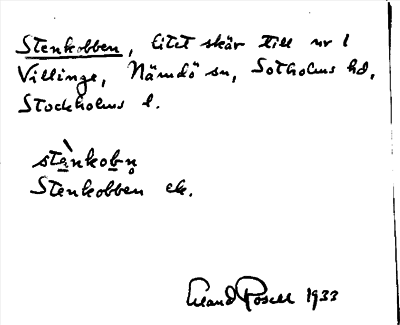 Stenkobben, litet skär till nr 1
Villinge, Nämdö sn, Sotholms hd,
Stockholms l.
stànkobn̥
Stenkobben ek.
Erland Rosell 1933